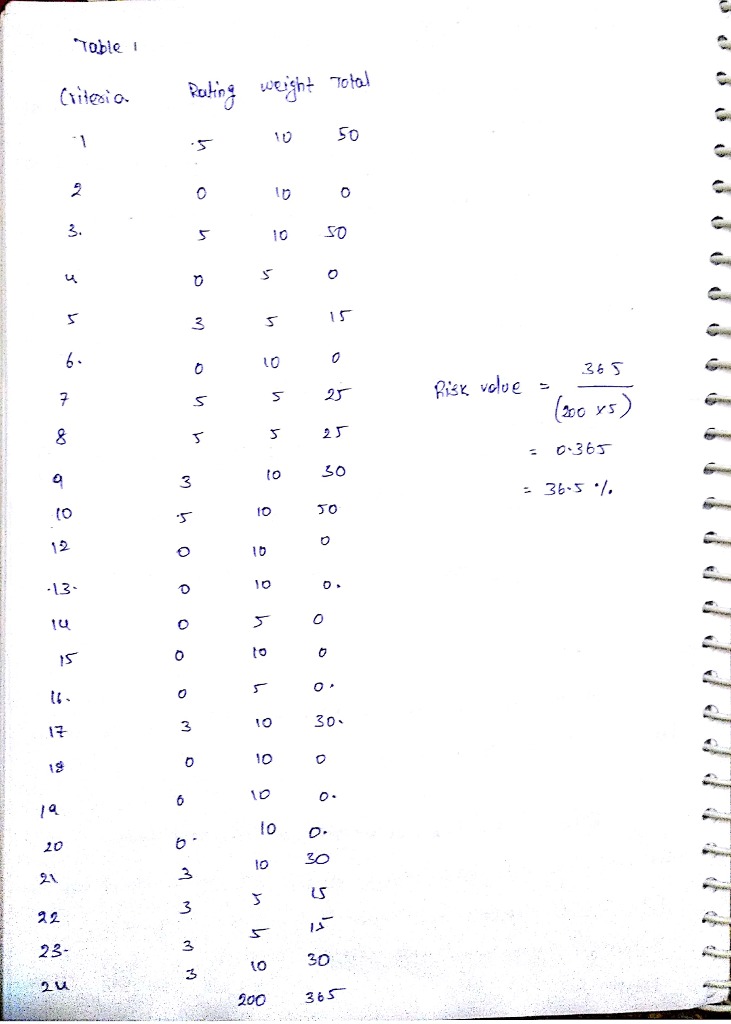 Table 1
Criteria Rating weight Total
1 5 10 50
2 0 10 0
3. 5 10 50
4 0 5 0
5 3 5 15
6. 0 10 0
7 5 5 25
8 5 5 25
9 3 10 30
10 5 10 50
12 0 10 0
13. 0 10 0.
14 0 5 0
15 0 10 0
16. 0 5 0.
17 3 10 30.
18 0 10 0
19 0 10 0.
20 0. 10 0.
21 3 10 30
22 3 5 15
23. 3 5 15
24 3 10 30
200 365
Risk value = 365
(200 x5)
= 0.365
= 36.5 %